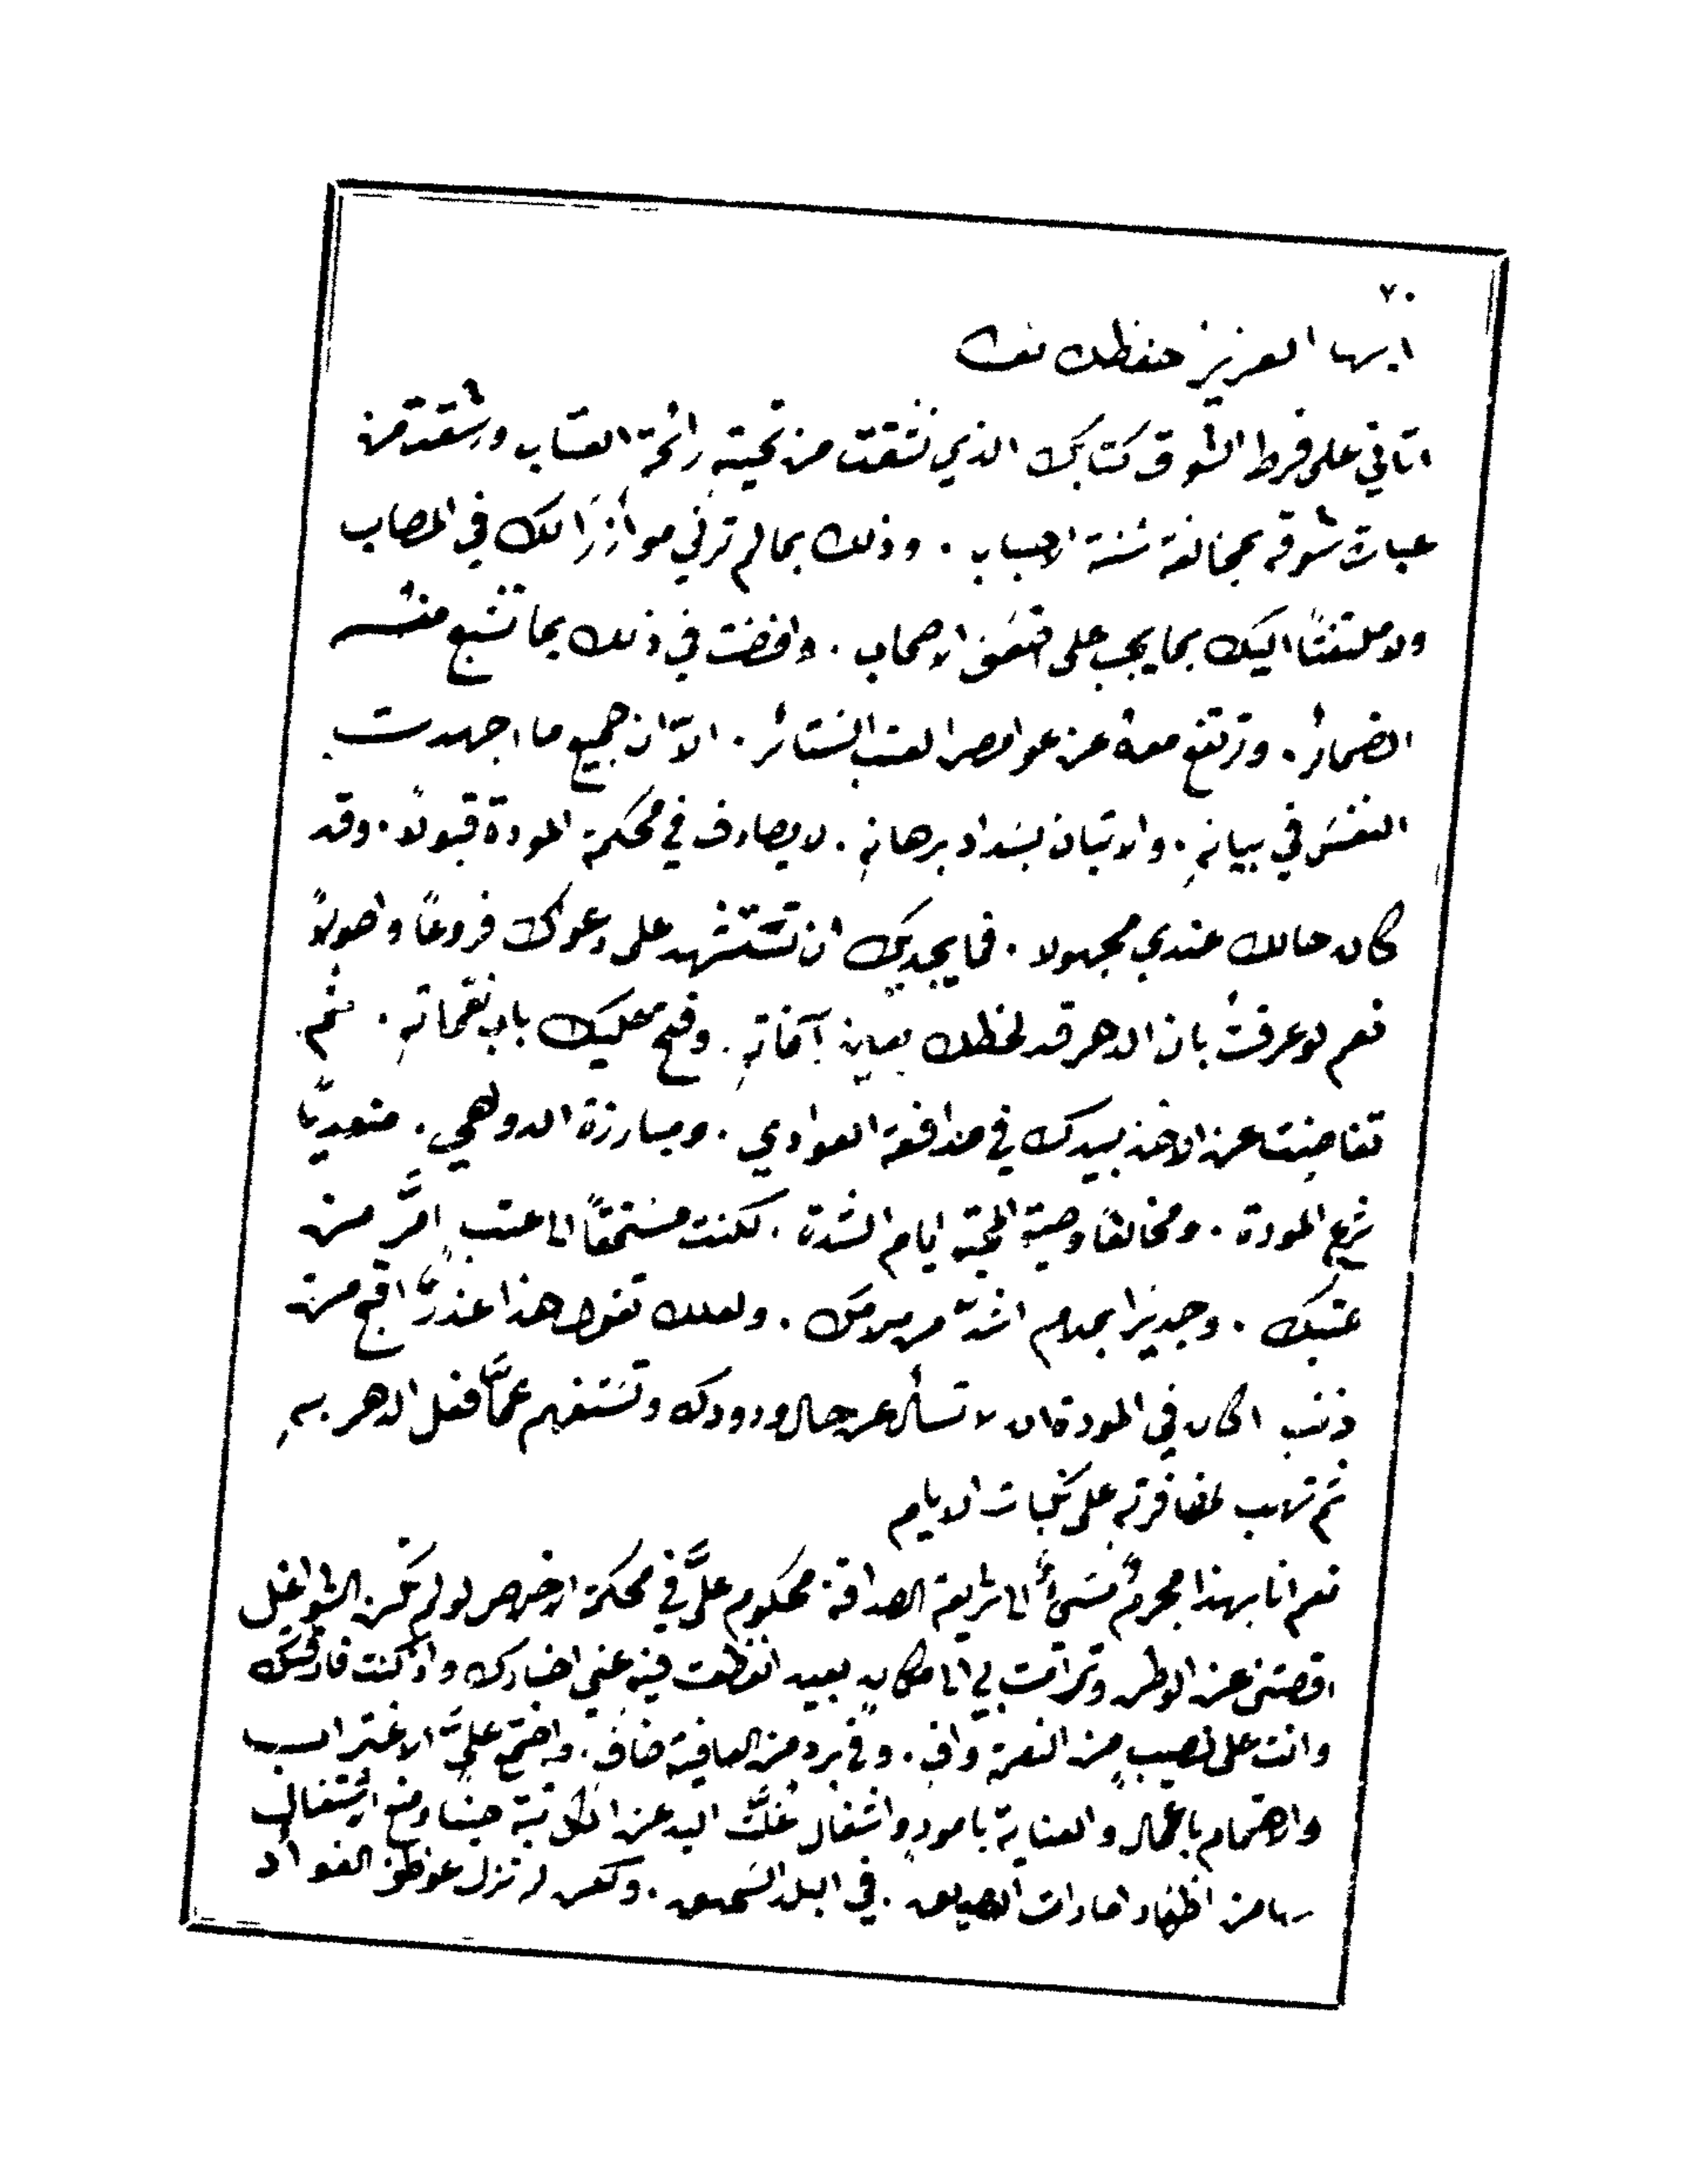 ٧٠
ايها العزيز حفظك
اتاني على فرط الشوق كتابك الذي نشقت من تحيته رائحة العتاب ورشقت من
عبارة شوقه بمخالفة سُنة الاحباب . وذلك بما لم ترَني موازرًا لك في المصاب
ولا ملتفتًا اليك بما يجب على الاصحاب . وافضت في ذلك بما تشبع منهُ
الضمائر . وترتفع معهُ عن عوامصر العتب الستائر . الاّ ان جميع ما اجهدت
النفسَ في بيانهِ . والاتيان بسَداد برهانهِ . لا يصادف في محكمة المودة قبولاً . وقد
كان حالك عندي مجهولا . فما يجديك ان تستشهد على دعواك فروعًا واصولاً
نعم لو عرفتُ بان الدهر قد لحظك بعين آفاتهِ . وفتح عليك باب نقماتهِ . ثم
تغاضيت عن الاخذ بيدك في مدافعة العوادي . ومبارزة الدواهي . متعديًا
شرع المودة . ومخالفا وصية المحبة ايام الشدة . لكنت مستحقًا الى عتبٍ امرَّ من
عتبك . وجديرًا بملام اشدّ من ملامك . ولعلك تقول هذا عذرٌ اقبح من
ذنب اكان في المودة ان لا تسأل عن حال ودودك وتستفهم عمَّا فعل الدهر بهِ
ثم تهب لمضافرتهِ على نكبات الايام
نعم انا بهذا مجرمٌ مسَيءٌ الى شريعة الصداقة محكوم عليَّ في محكمة الاخلاص لو لم تكن الشواغل
اقصتني عن الوطن وترامت بي الى مكانٍ بعيد انقطعت فيه عني اخبارك واذ كنت فارقتك
وانت على نصيبٍ من النعمة وافٍ . وفي برد من العافية ضافٍ . واجتمع عليَّ الاغتراب
والاهتمام باعمال والعناية بامورٍ واشغال تُغلُّ اليد عن المكاتبة حينًا ومنع اشتغالي
بها من اظهار امارات . في البلد السحيق . ولكن لم تزل عواطف الفؤاد